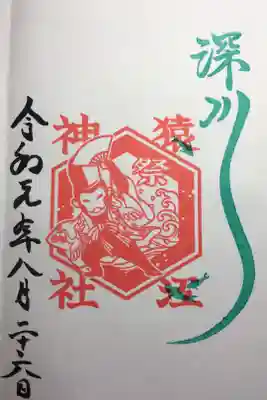 深川
猿江
祭
神社
令和元年八月二十六日